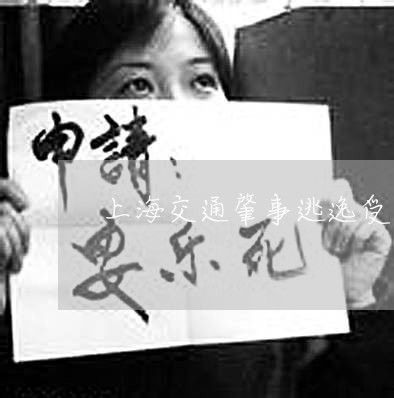 申請：
上海交通肇事逃逸受
安乐死